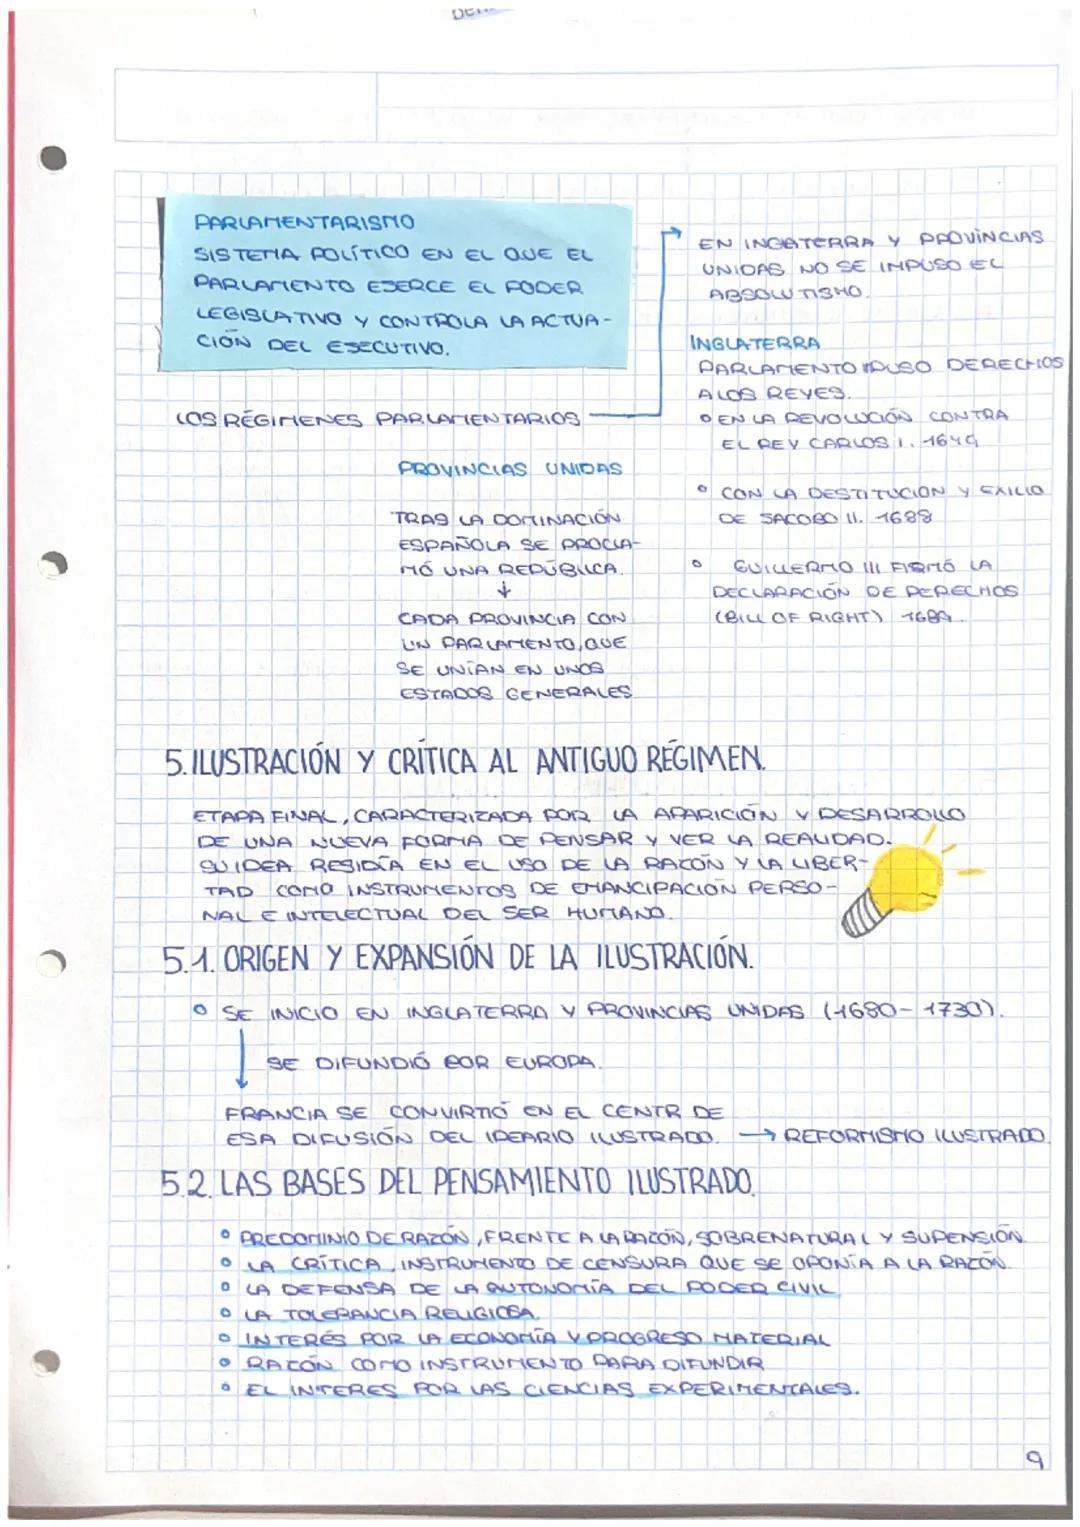 PARLAMENTARISMO
SISTEMA POLÍTICO EN EL QUE EL
PARLAMENTO EJERCE EL PODER
LEGISLATIVO Y CONTROLA LA ACTUA-
CIÓN DEL EJECUTIVO.
LOS RÉGIMENES PARLAMENTARIOS
EN INGLATERRA Y PROVINCIAS
UNIDAS NO SE IMPUSO EL
ABSOLUTISMO.
INGLATERRA
PARLAMENTO IPUSO DERECHOS
A LOS REYES.
EN LA REVOLUCIÓN CONTRA
EL REY CARLOS I. 1649
CON LA DESTITUCION Y EXILIO
DE JACOBO II. 1688
GUILLERMO III FIRMÓ LA
DECLARACIÓN DE DERECHOS
(BILL OF RIGHT) 1689.
PROVINCIAS UNIDAS
TRAS LA DOMINACIÓN
ESPAÑOLA SE PROCLA-
MÓ UNA REPÚBLICA.
↓
CADA PROVINCIA CON
UN PARLAMENTO, QUE
SE UNÍAN EN UNOS
ESTADOS GENERALES
5. ILUSTRACIÓN Y CRÍTICA AL ANTIGUO RÉGIMEN.
ETAPA FINAL, CARACTERIZADA POR LA APARICIÓN Y DESARROLLO
DE UNA NUEVA FORMA DE PENSAR Y VER LA REALIDAD.
SU IDEA RESIDÍA EN EL USO DE LA RAZÓN Y LA LIBER-
TAD COMO INSTRUMENTOS DE EMANCIPACION PERSO-
NAL E INTELECTUAL DEL SER HUMANO.
5.1. ORIGEN Y EXPANSIÓN DE LA ILUSTRACIÓN.
SE INICIO EN INGLATERRA Y PROVINCIAS UNIDAS (1680-1730).
SE DIFUNDIÓ POR EUROPA.
FRANCIA SE CONVIRTIÓ EN EL CENTR DE
ESA DIFUSIÓN DEL IDEARIO ILUSTRADO. → REFORMISMO ILUSTRADO
5.2. LAS BASES DEL PENSAMIENTO ILUSTRADO.
PREDOMINIO DE RAZÓN, FRENTE A LA RAZÓN, SOBRENATURAL Y SUPENSIÓN
LA CRÍTICA, INSTRUMENTO DE CENSURA QUE SE OPONÍA A LA RAZÓN.
LA DEFENSA DE LA AUTONOMÍA DEL PODER CIVIL
LA TOLERANCIA RELIGIOSA.
INTERÉS POR LA ECONOMÍA Y PROGRESO MATERIAL
RAZÓN COMO INSTRUMENTO PARA DIFUNDIR
EL INTERES POR LAS CIENCIAS EXPERIMENTALES.
9